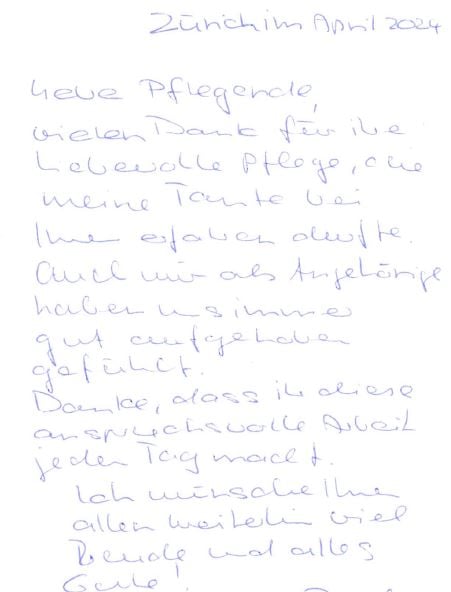 Zürich im April 2024
Liebe Pflegende,
vielen Dank für ihre
liebevolle Pflege, die
meine Tante bei
Ihnen erfahren durfte.
Auch wir als Angehörige
haben uns immer
gut aufgehoben
gefühlt.
Danke, dass ihr diese
anspruchsvolle Arbeit
jeden Tag macht.
Ich wünsche Ihnen
allen weiterhin viel
Freude und alles
Gute!